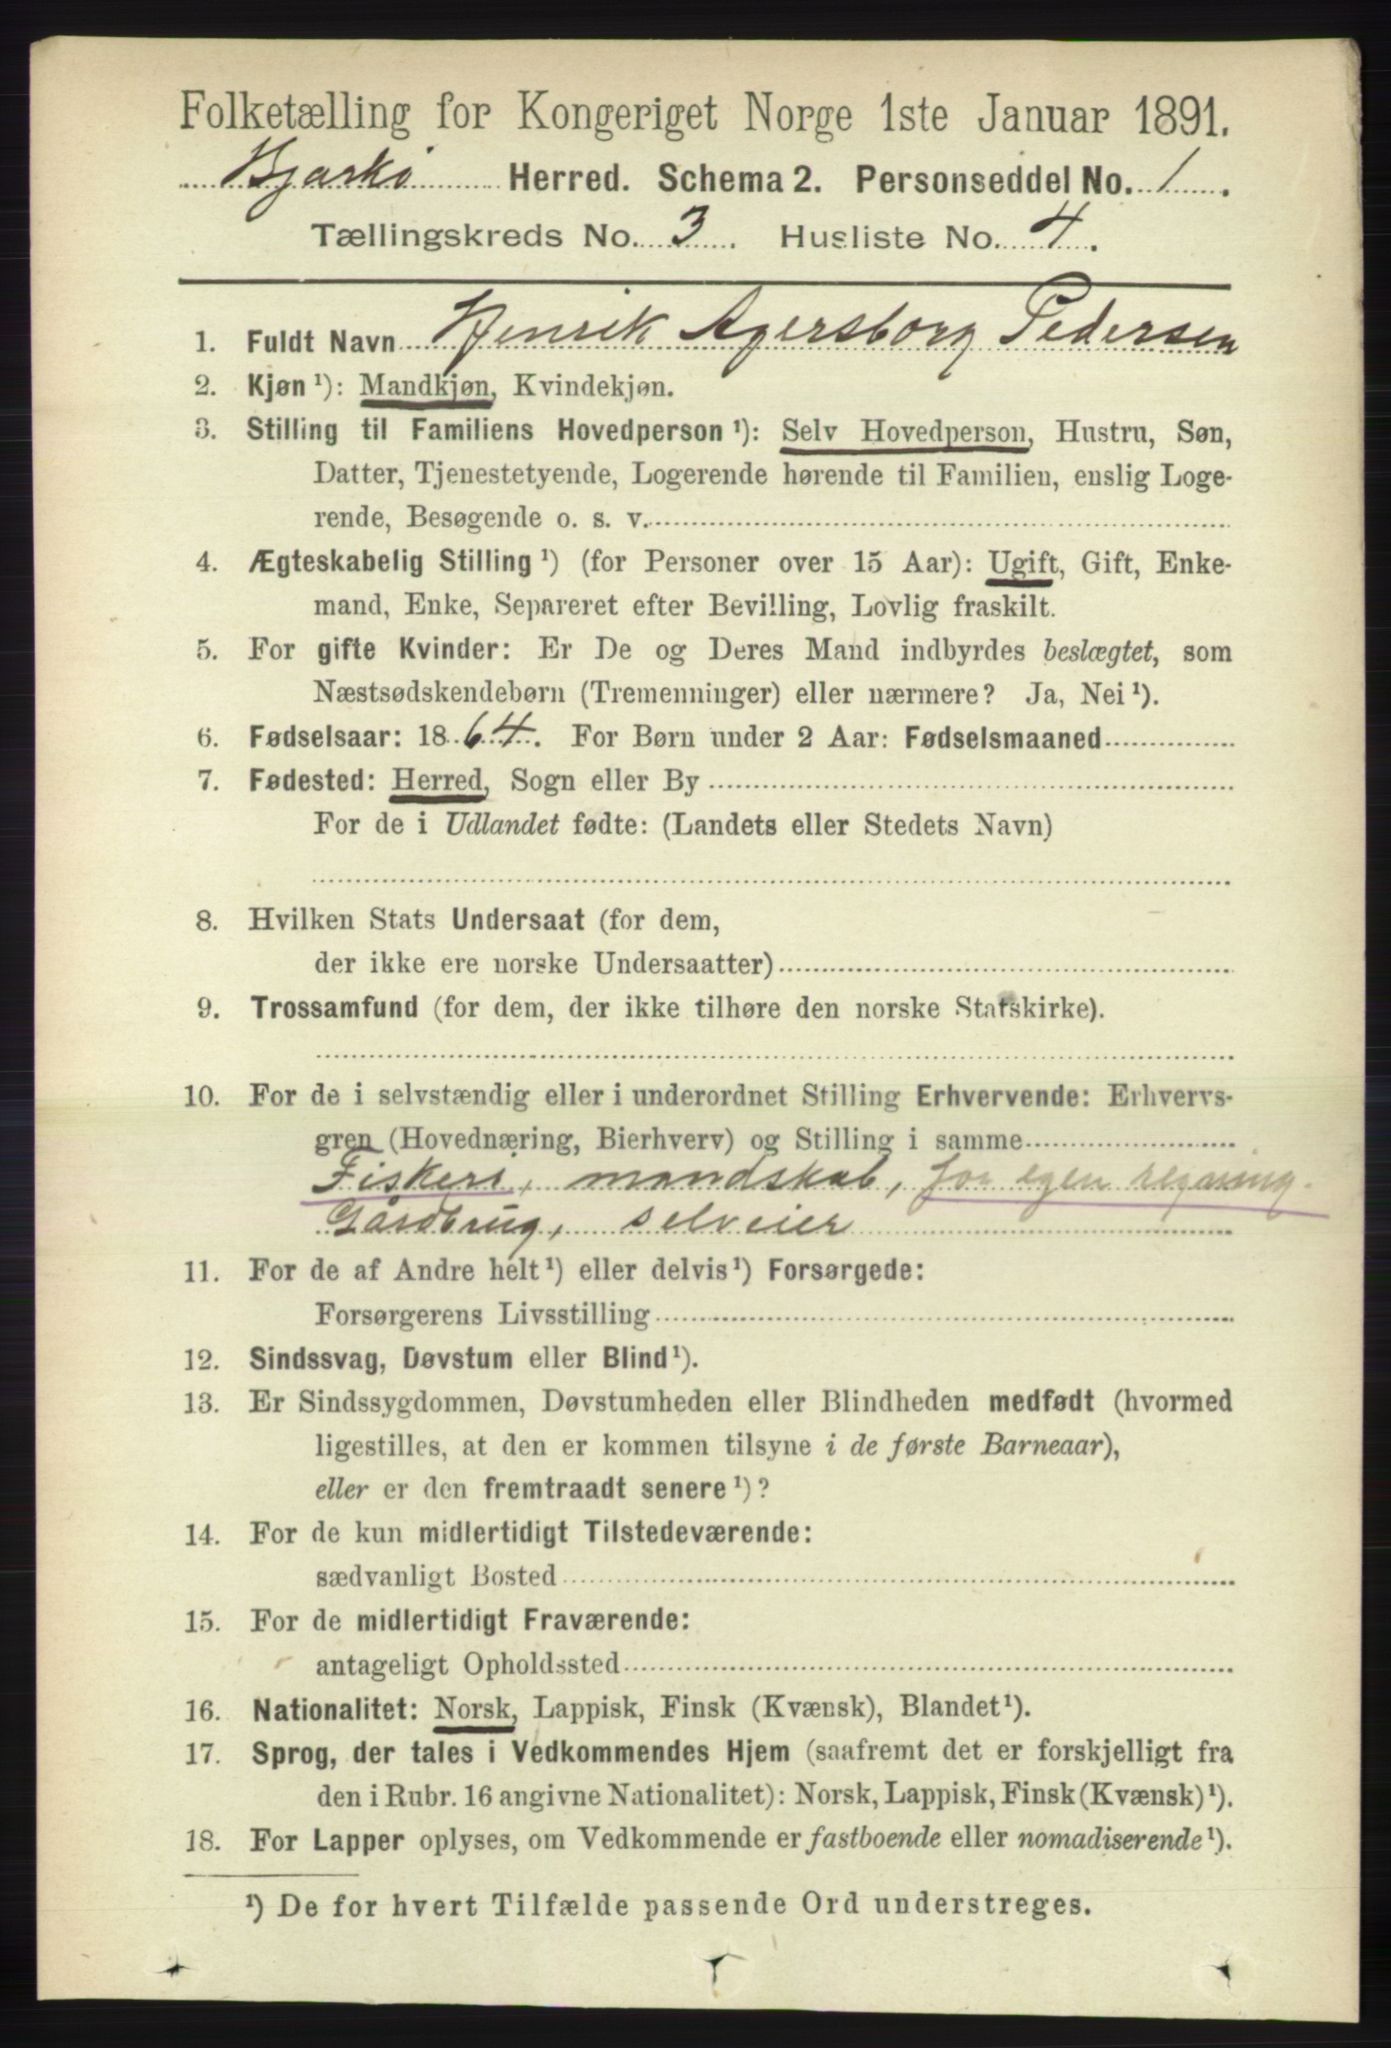 Folketælling for Kongeriget Norge 1ste Januar 1891.
Bjarkö Herred. Schema 2. Personseddel No. 1.
Tællingskreds No. 3. Husliste No. 4.
1. Fuldt Navn Henrik Agersborg Pedersen
2. Kjøn ¹): Mandkjøn, Kvindekjøn.
3. Stilling til Familiens Hovedperson ¹): Selv Hovedperson, Hustru, Søn,
Datter, Tjenestetyende, Logerende hørende til Familien, enslig Loge-
rende, Besøgende o. s. v.
4. Ægteskabelig Stilling ¹) (for Personer over 15 Aar): Ugift, Gift, Enke-
mand, Enke, Separeret efter Bevilling, Lovlig fraskilt.
5. For gifte Kvinder: Er De og Deres Mand indbyrdes beslægtet, som
Næstsødskendebørn (Tremenninger) eller nærmere? Ja, Nei ¹).
6. Fødselsaar: 1864. For Børn under 2 Aar: Fødselsmaaned
7. Fødested: Herred, Sogn eller By
For de i Udlandet fødte: (Landets eller Stedets Navn)
8. Hvilken Stats Undersaat (for dem,
der ikke ere norske Undersaatter)
9. Trossamfund (for dem, der ikke tilhøre den norske Statskirke).
10. For de i selvstændig eller i underordnet Stilling Erhvervende: Erhvervs-
gren (Hovednæring, Bierhverv) og Stilling i samme
Fiskeri, mandskab, for egen regning.
Gårdbrug, selveier
11. For de af Andre helt ¹) eller delvis ¹) Forsørgede:
Forsørgerens Livsstilling
12. Sindssvag, Døvstum eller Blind ¹).
13. Er Sindssygdommen, Døvstumheden eller Blindheden medfødt (hvormed
ligestilles, at den er kommen tilsyne i de første Barneaar),
eller er den fremtraadt senere ¹)?
14. For de kun midlertidigt Tilstedeværende:
sædvanligt Bosted
15. For de midlertidigt Fraværende:
antageligt Opholdssted
16. Nationalitet: Norsk, Lappisk, Finsk (Kvænsk), Blandet ¹).
17. Sprog, der tales i Vedkommendes Hjem (saafremt det er forskjelligt fra
den i Rubr. 16 angivne Nationalitet): Norsk, Lappisk, Finsk (Kvænsk) ¹).
18. For Lapper oplyses, om Vedkommende er fastboende eller nomadiserende ¹).
¹) De for hvert Tilfælde passende Ord understreges.